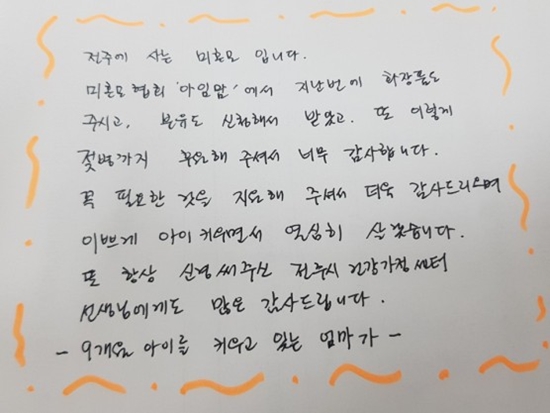 전주에 사는 미혼모 입니다.
미혼모협회 '아임맘'에서 지난번에 화장품도
주시고, 분유도 신청해서 받았고. 또 이렇게
젖병까지 후원해 주셔서 너무 감사합니다.
꼭 필요한 것을 지원해 주셔서 더욱 감사드리으며
이쁘게 아이키우면서 열심히 살겠습니다.
또 항상 신경써주신 전주시 건강가정센터
선생님에게도 많은 감사드립니다.
- 9개월 아이를 키우고 있는 엄마가 -